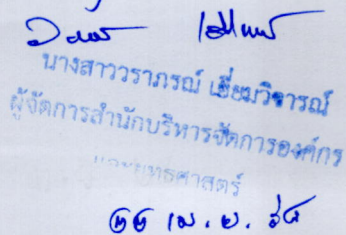 นางสาววราภรณ์ เอี่ยมวิจารณ์
ผู้จัดการสำนักบริหารจัดการองค์กร
และยุทธศาสตร์
๒๒ เม.ย. ๖๘